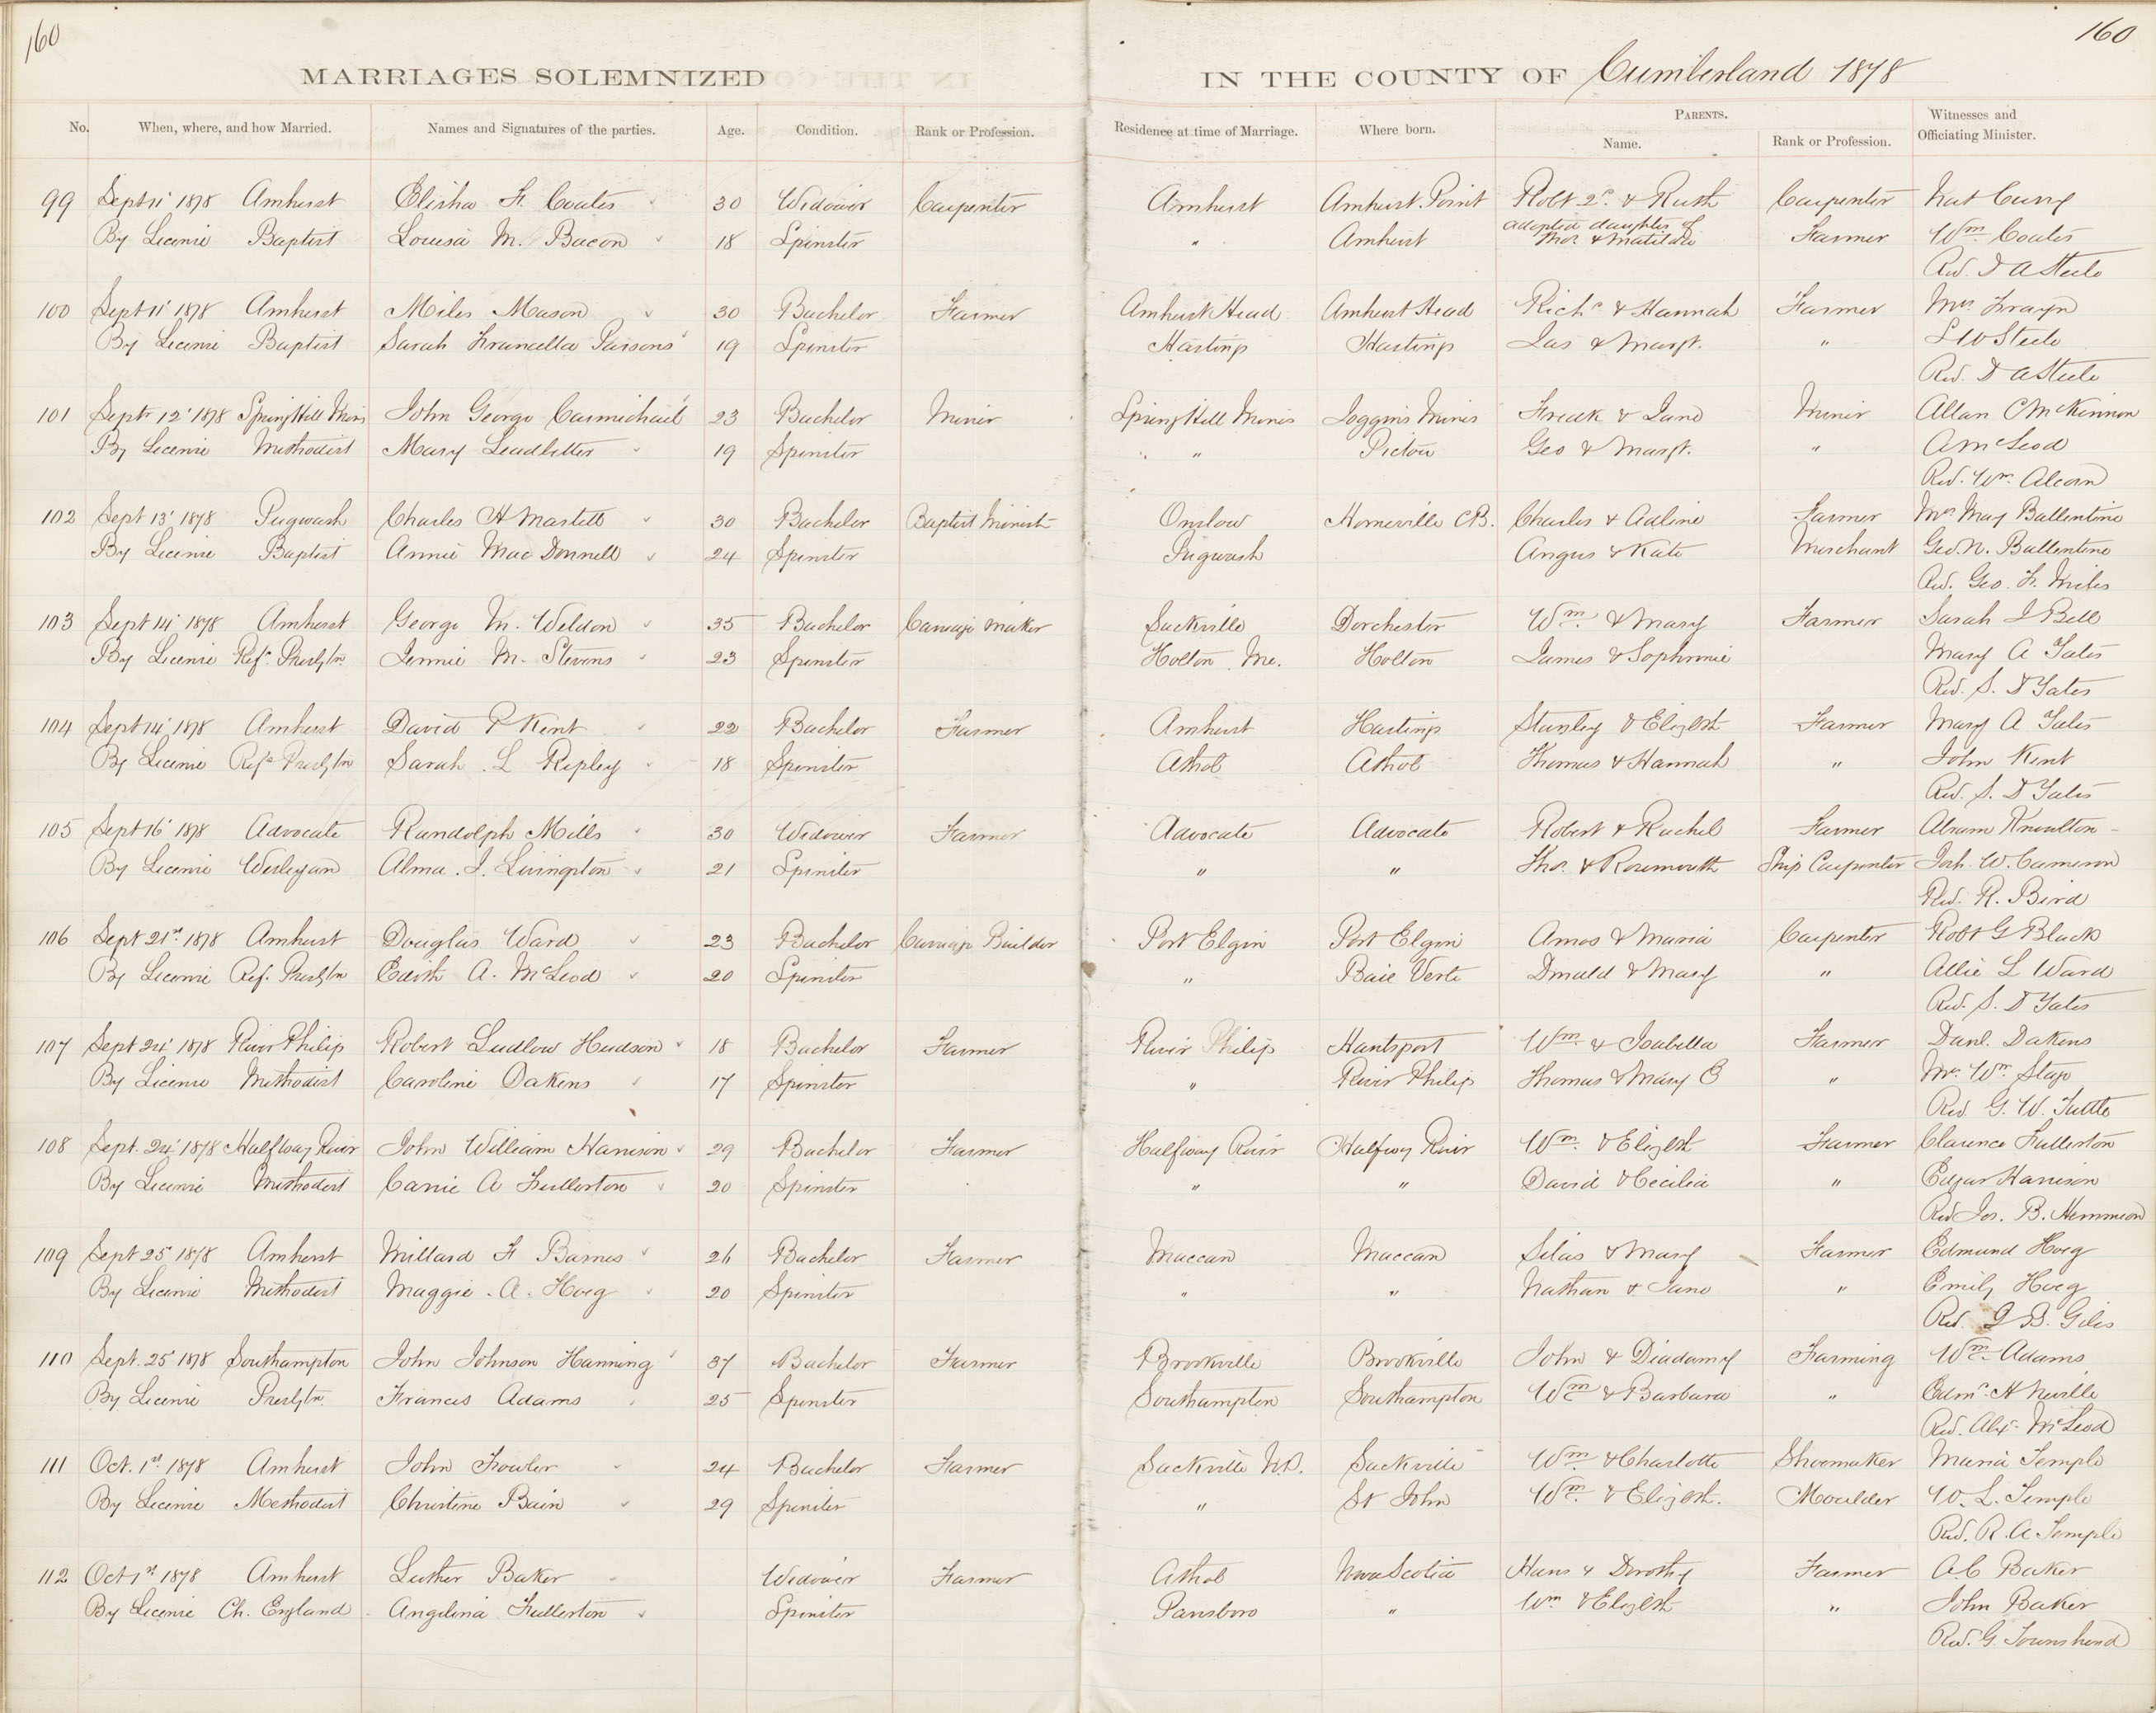 160
160
MARRIAGES SOLEMNIZED IN THE COUNTY OF Cumberland 1878
No. When, where, and how Married. Names and Signatures of the parties. Age. Condition. Rank or Profession. Residence at time of Marriage. Where born. PARENTS. Name. Rank or Profession. Witnesses and Officiating Minister.
99 Sept 11' 1878 Amherst Elisha F. Coates 30 Widower Carpenter Amherst Amherst Point Robt 2d & Ruth Carpenter Nat Curry
adopted daughter of
By License Baptist Louisa M. Bacon 18 Spinster " Amherst Thos. & Matilda Farmer Wm Coates
Rev. D A Steele
100 Sept 11' 1878 Amherst Miles Mason 30 Bachelor Farmer Amherst Head Amherst Head Richd & Hannah Farmer Mrs
By License Baptist Sarah Francella Parsons 19 Spinster Hastings Hastings Jas & Margt. " Steele
Rev. D A Steele
101 Septr 12' 1878 Spring Hill Mines John George Carmichael 23 Bachelor Miner Spring Hill Mines Joggins Mines Fredk & Jane Miner Allan C McKinnon
By License Methodist Mary Leadbetter 19 Spinster " " Pictou Geo & Margt. " A McLeod
Rev. Wm. Alcorn
102 Sept 13' 1878 Pugwash Charles H Martell 30 Bachelor Baptist Minist Onslow Homeville C.B. Charles & Adline Farmer Mrs May Ballentine
By License Baptist Annie Mac Donnell 24 Spinster Pugwash Angus & Kate Merchant Geo. N. Ballentine
Rev. Geo. F. Miles
103 Sept 14' 1878 Amherst George M. Weldon 35 Bachelor Carriage Maker Sackville Dorchester Wm. & Mary Farmer Sarah J Bell
By License Ref. Presbytn Jennie M. Stevens 23 Spinster Holton Me. Holton James & Sophronie Mary A Yates
Rev. S. D Yates
104 Sept 14' 1878 Amherst David P Kent 22 Bachelor Farmer Amherst Hastings Stanley & Elizbth Farmer Mary A Yates
By License Ref. Presbytn Sarah L Ripley 18 Spinster Athol Athol Thomas & Hannah " John Kent
Rev. S. D Yates
105 Sept 16' 1878 Advocate Randolph Mills 30 Widower Farmer Advocate Advocate Robert & Rachel Farmer Abram Knowlton
By License Wesleyan Alma. J. Livingston 21 Spinster " " Thos. & Rosemouth Ship Carpenter Joh. W. Cameron
Rev. R. Bird
106 Sept 21st 1878 Amherst Douglas Ward 23 Bachelor Carriage Builder Port Elgin Port Elgin Amos & Maria Carpenter Robt G Black
By License Ref. Presbytn Edith A. McLeod 20 Spinster " Baie Verte Donald & Mary " Allie L Ward
Rev. S. D Yates
107 Sept 24' 1878 River Philip Robert Ludlow Hudson 18 Bachelor Farmer River Philip Hantsport Wm. & Isabella Farmer Danl. Dakens
By License Methodist Caroline Dakens 17 Spinster " River Philip Thomas & Mary E " Mrs. Wm. Stap
Rev. G. W. Tuttle
108 Sept. 24' 1878 Halfway River John William Harrison 29 Bachelor Farmer Halfway River Halfway River Wm. & Elizbth Farmer Clarence Fullerton
By License Methodist Carrie A Fullerton 20 Spinster " " David & Cecilia " Edgar Harrison
Rev Jos. B. Hemmeon
109 Sept 25' 1878 Amherst Millard F Barnes 26 Bachelor Farmer Maccan Maccan Silas & Mary Farmer Edmund Hoeg
By License Methodist Maggie. A. Hoeg 20 Spinster " " Nathan & Jane " Emily Hoeg
Rev. J B. Giles
110 Sept. 25' 1878 Southampton John Johnson Hanning 37 Bachelor Farmer Brookville Brookville John & Diadamy Farming Wm Adams
By License Presbytn. Frances Adams 25 Spinster Southampton Southampton Wm & Barbara " Edmd H Neville
Rev. Alex. McLeod
111 Oct. 1st 1878 Amherst John Fowler 24 Bachelor Farmer Sackville N.B. Sackville Wm. & Charlotte Shoemaker Maria Temple
By License Methodist Christine Bain 29 Spinster " St John Wm. & Elizbth. Moulder W. L. Temple
Rev. R. A Temple
112 Oct 1st 1878 Amherst Luther Baker Widower Farmer Athol Nova Scotia Hans & Dorothy Farmer A C Baker
By License Ch. England Angelina Fullerton Spinster Parrsboro " Wm & Elizbth " John Baker
Rev. G. Townshend